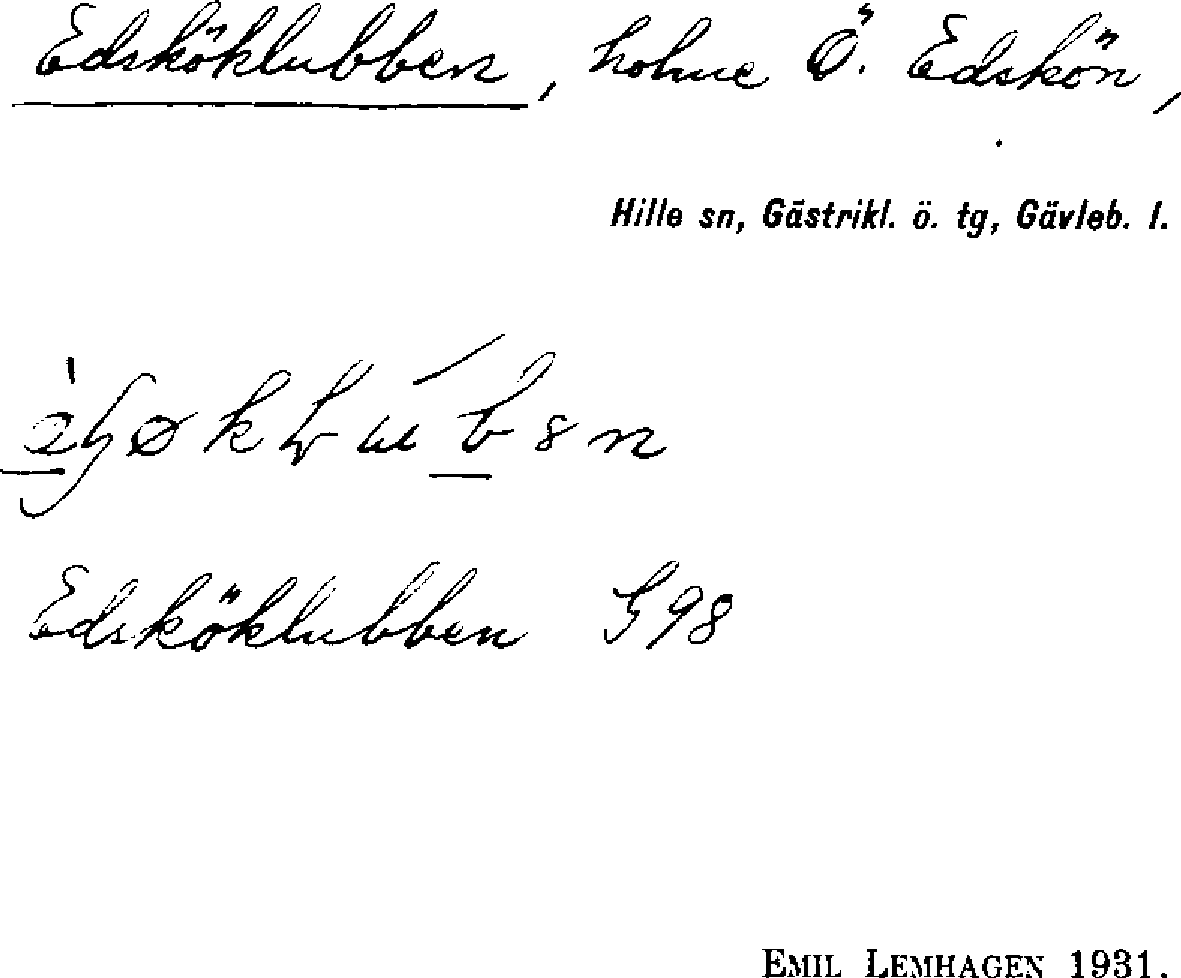 Edsköklubben, holme Ö. Edskön,
Hille sn, Gästrikl. ö. tg, Gävleb. l.
Edsköklubben G98
EMIL LEMHAGEN 1931.